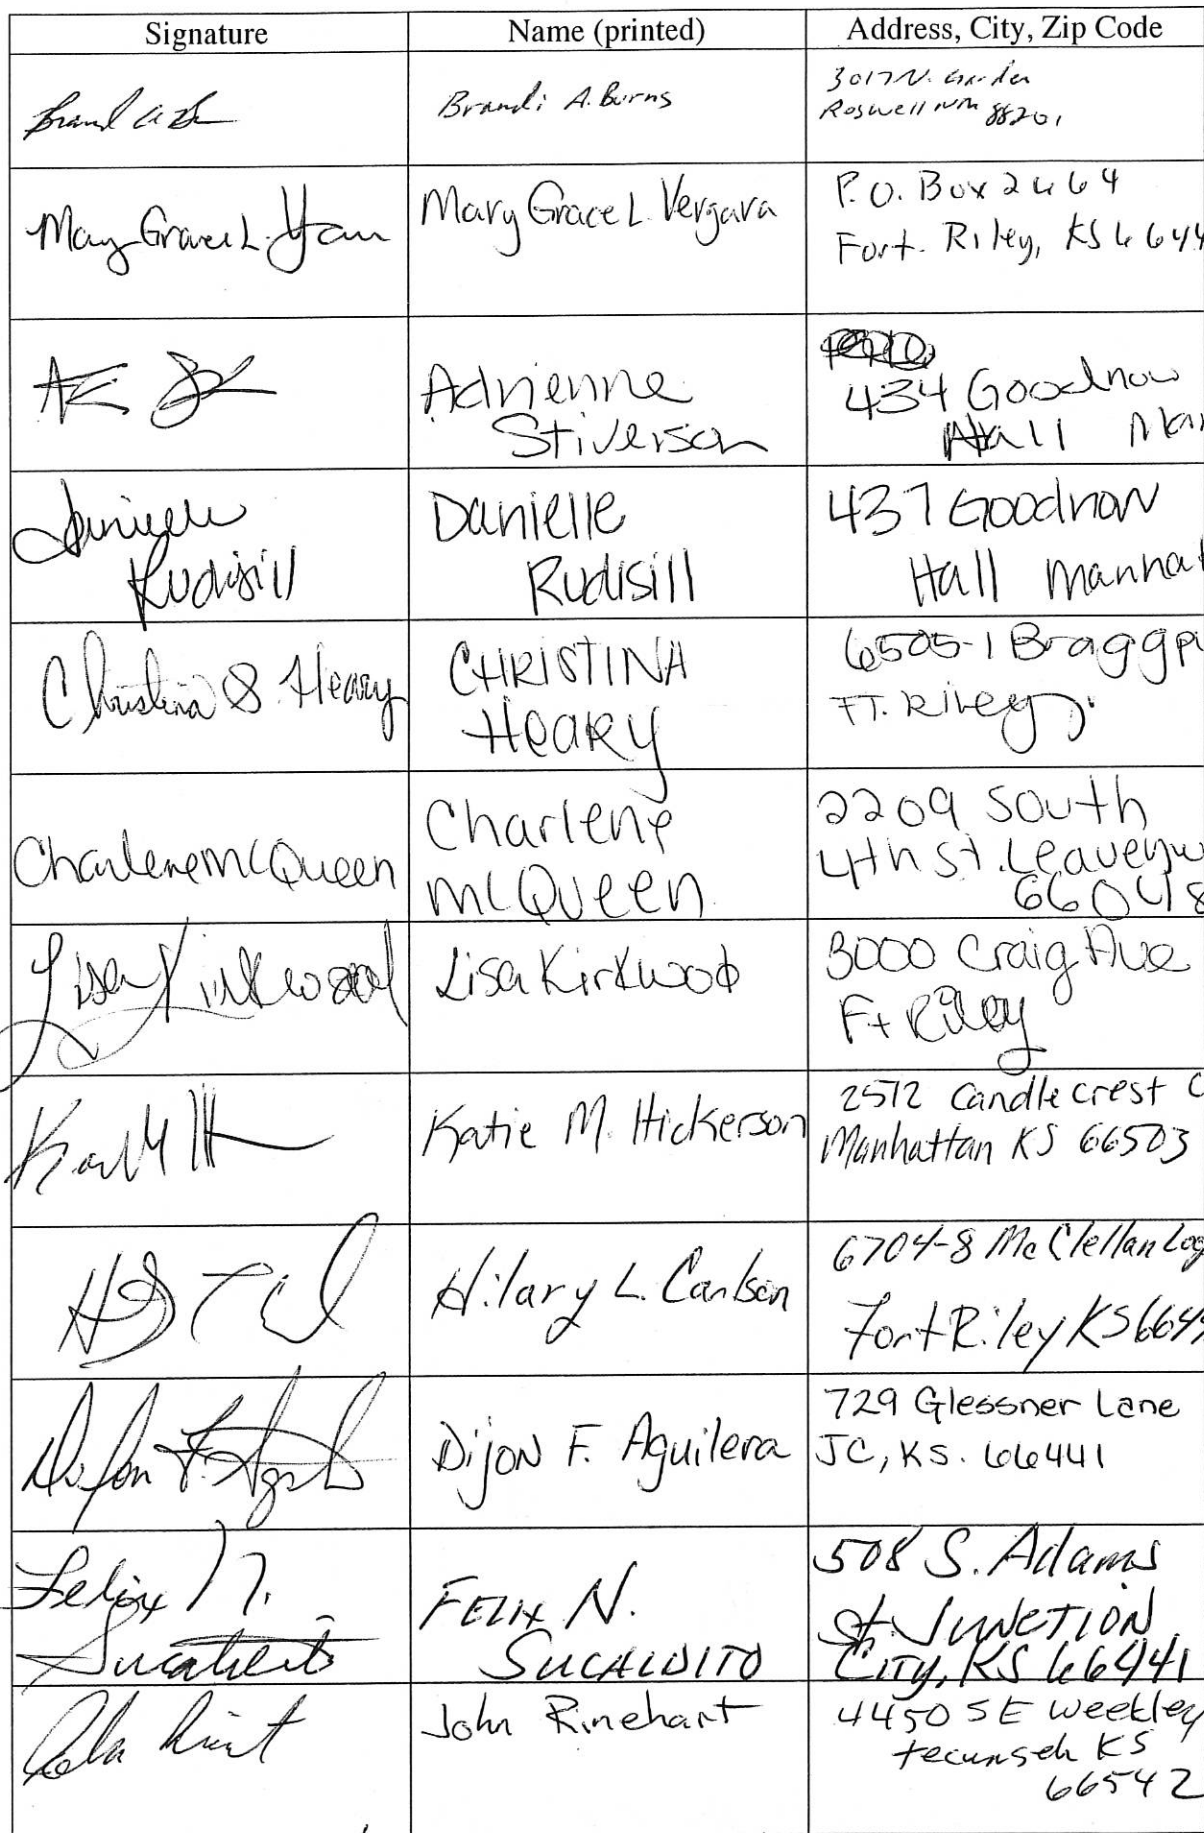 Signature Name (printed) Address, City, Zip Code
Brandi A. Burns
3017 N. Garden
Roswell NM 88201
Mary Grace L. Mary Grace L. Vergara
P.O. Box 2464
Fort. Riley, KS 6644
Adrienne
Stiverson
434 Goodnow
Hall Man
Danielle
Rudisill
Danielle
Rudisill
437 Goodnow
Hall Manhat
Christina S. Heary
CHRISTINA
HEARY
6505-1 Braggp
FT. Riley
Charlene McQueen
Charlene
McQueen
2209 South
4th St. Leavenw
66048
Lisa Kirkwood
Lisa Kirkwood
3000 Craig Ave
Ft Riley
Katie M. Hickerson
2572 Candlecrest C
Manhattan KS 66503
Hilary L. Carlson
6704-8 McClellan Loo
Fort Riley KS 6644
Dijon F. Dijon F. Aguilera
729 Glessner Lane
JC, KS. 66441
Felix N.
Sucaldito
FELIX N.
SUCALDITO
508 S. Adams
St. JUNCTION
CITY, KS 66441
John Rinehart
4450 SE Weekley
tecumseh KS
66542